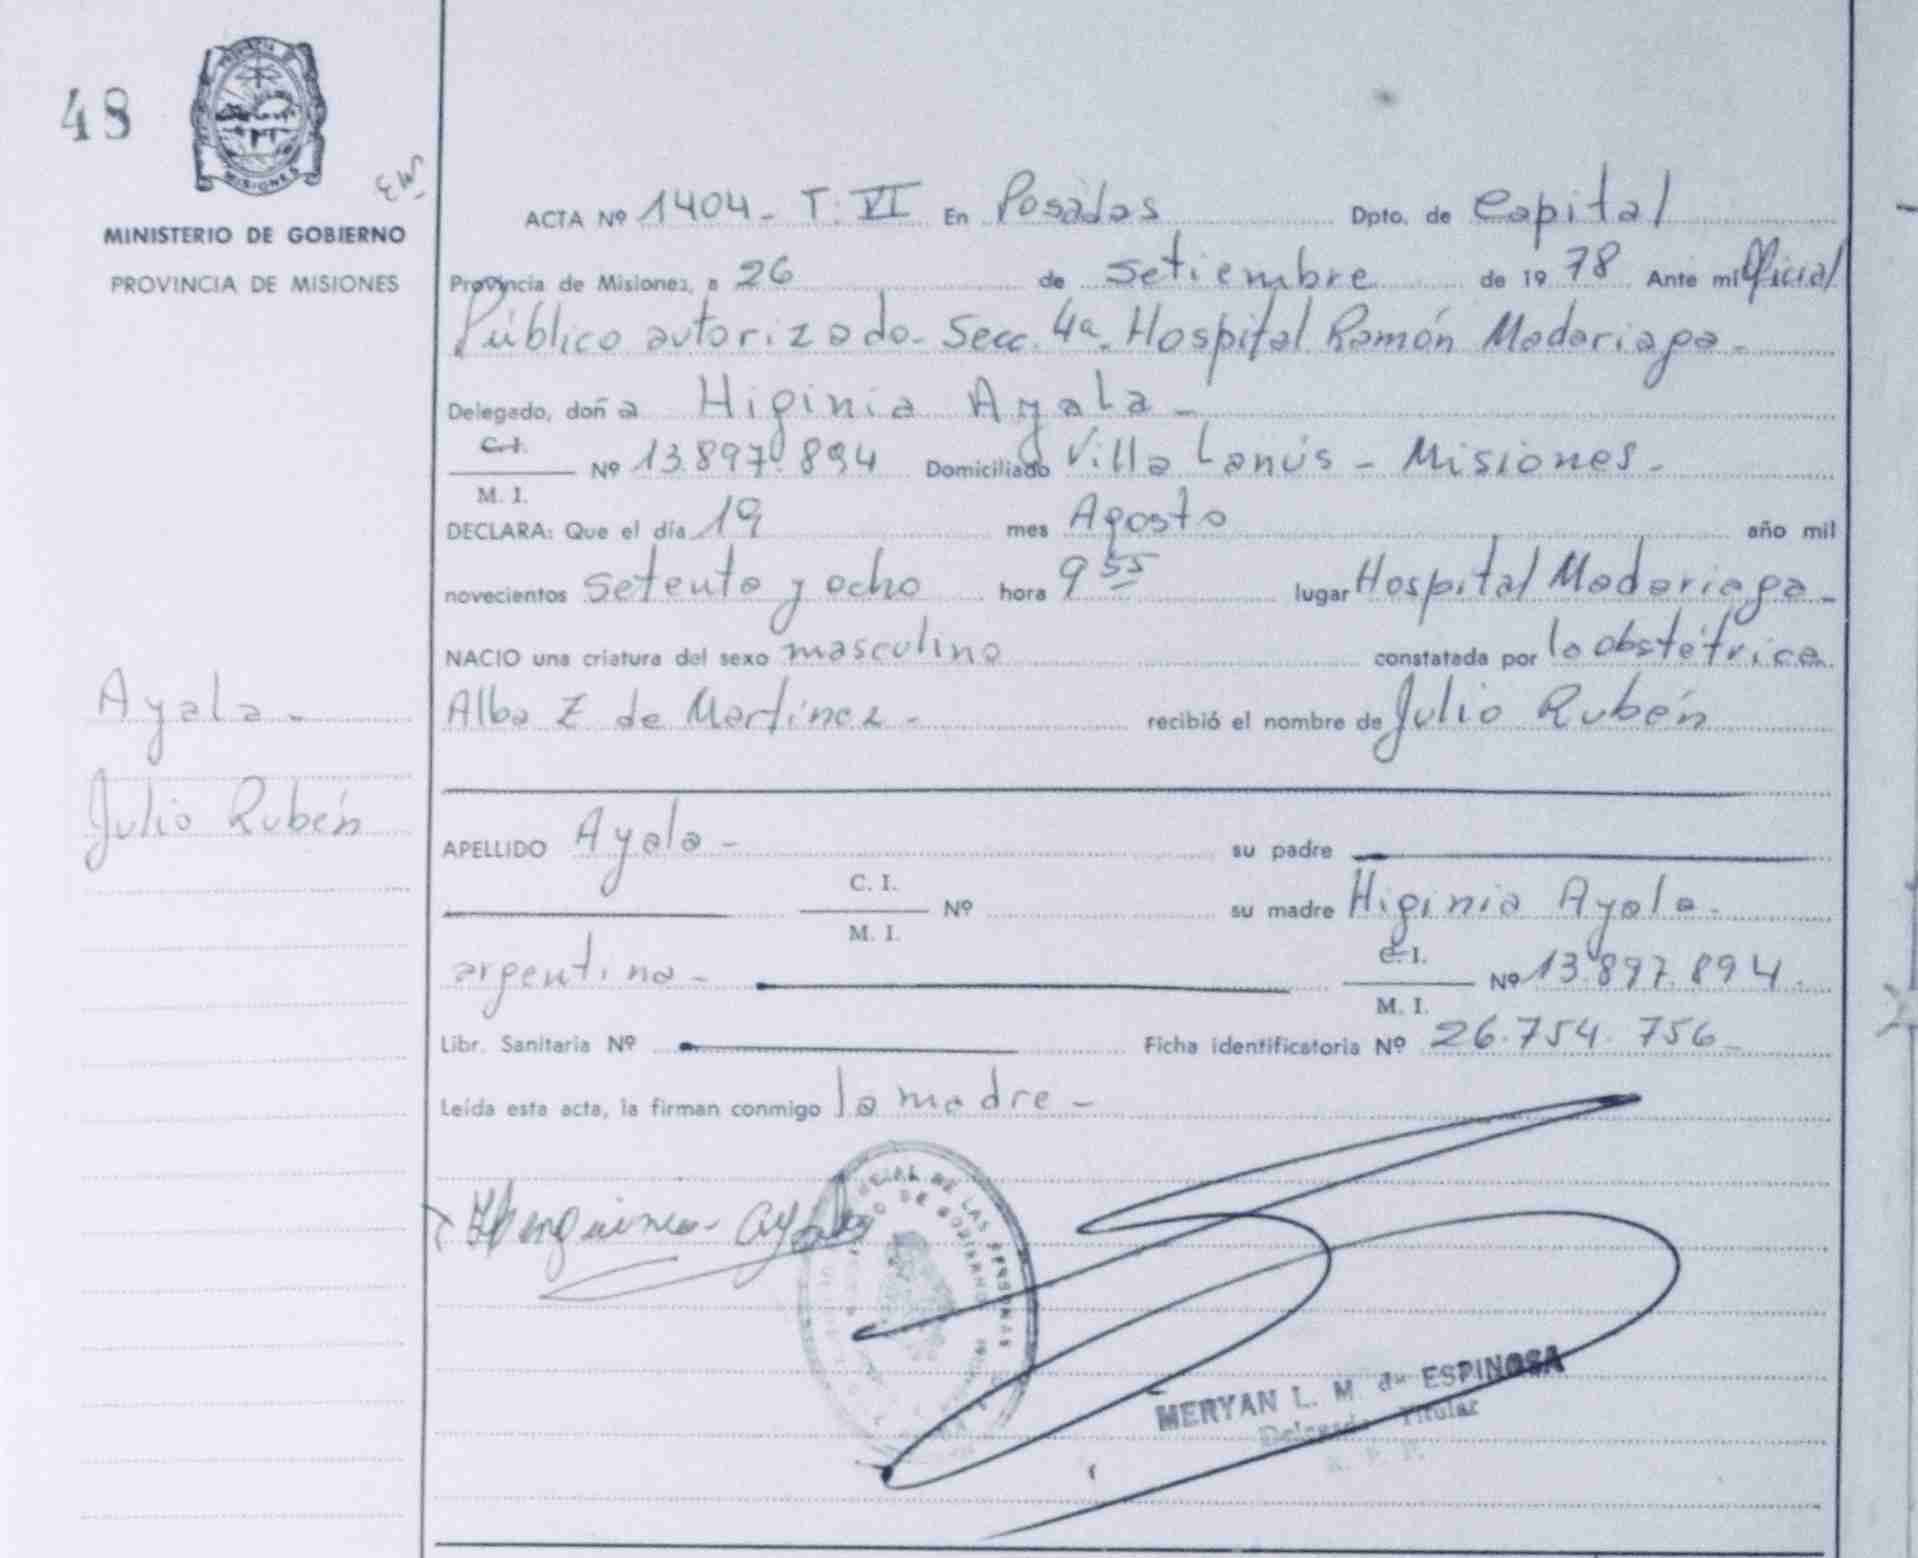 48
MISIONES
MINISTERIO DE GOBIERNO
PROVINCIA DE MISIONES
ACTA Nº 1404 - T. VI En Posadas Dpto. de Capital
Provincia de Misiones, a 26 de setiembre de 1978 Ante mi Oficial
Público autorizado - Secc. 4a. Hospital Ramón Madariaga -
Delegado, doña Higinia Ayala -
C.I.
M. I. Nº 13.897.894 Domiciliado Villa Lanús - Misiones -
DECLARA: Que el día 19 mes Agosto año mil
novecientos setenta y ocho hora 9 55 lugar Hospital Madariaga -
NACIO una criatura del sexo masculino constatada por la obstétrica
Alba Z de Martínez - recibió el nombre de Julio Rubén
Ayala -
Julio Rubén
APELLIDO Ayala - su padre
C. I.
M. I. Nº su madre Higinia Ayala -
argentina - C.I.
M. I. Nº 13.897.894 -
Libr. Sanitaria Nº Ficha identificatoria Nº 26.754.756 -
Leída esta acta, la firman conmigo la madre -
DE LAS PERSONAS
DE GOBIERNO
MERYAN L. M. de ESPINOSA
Delegada Titular